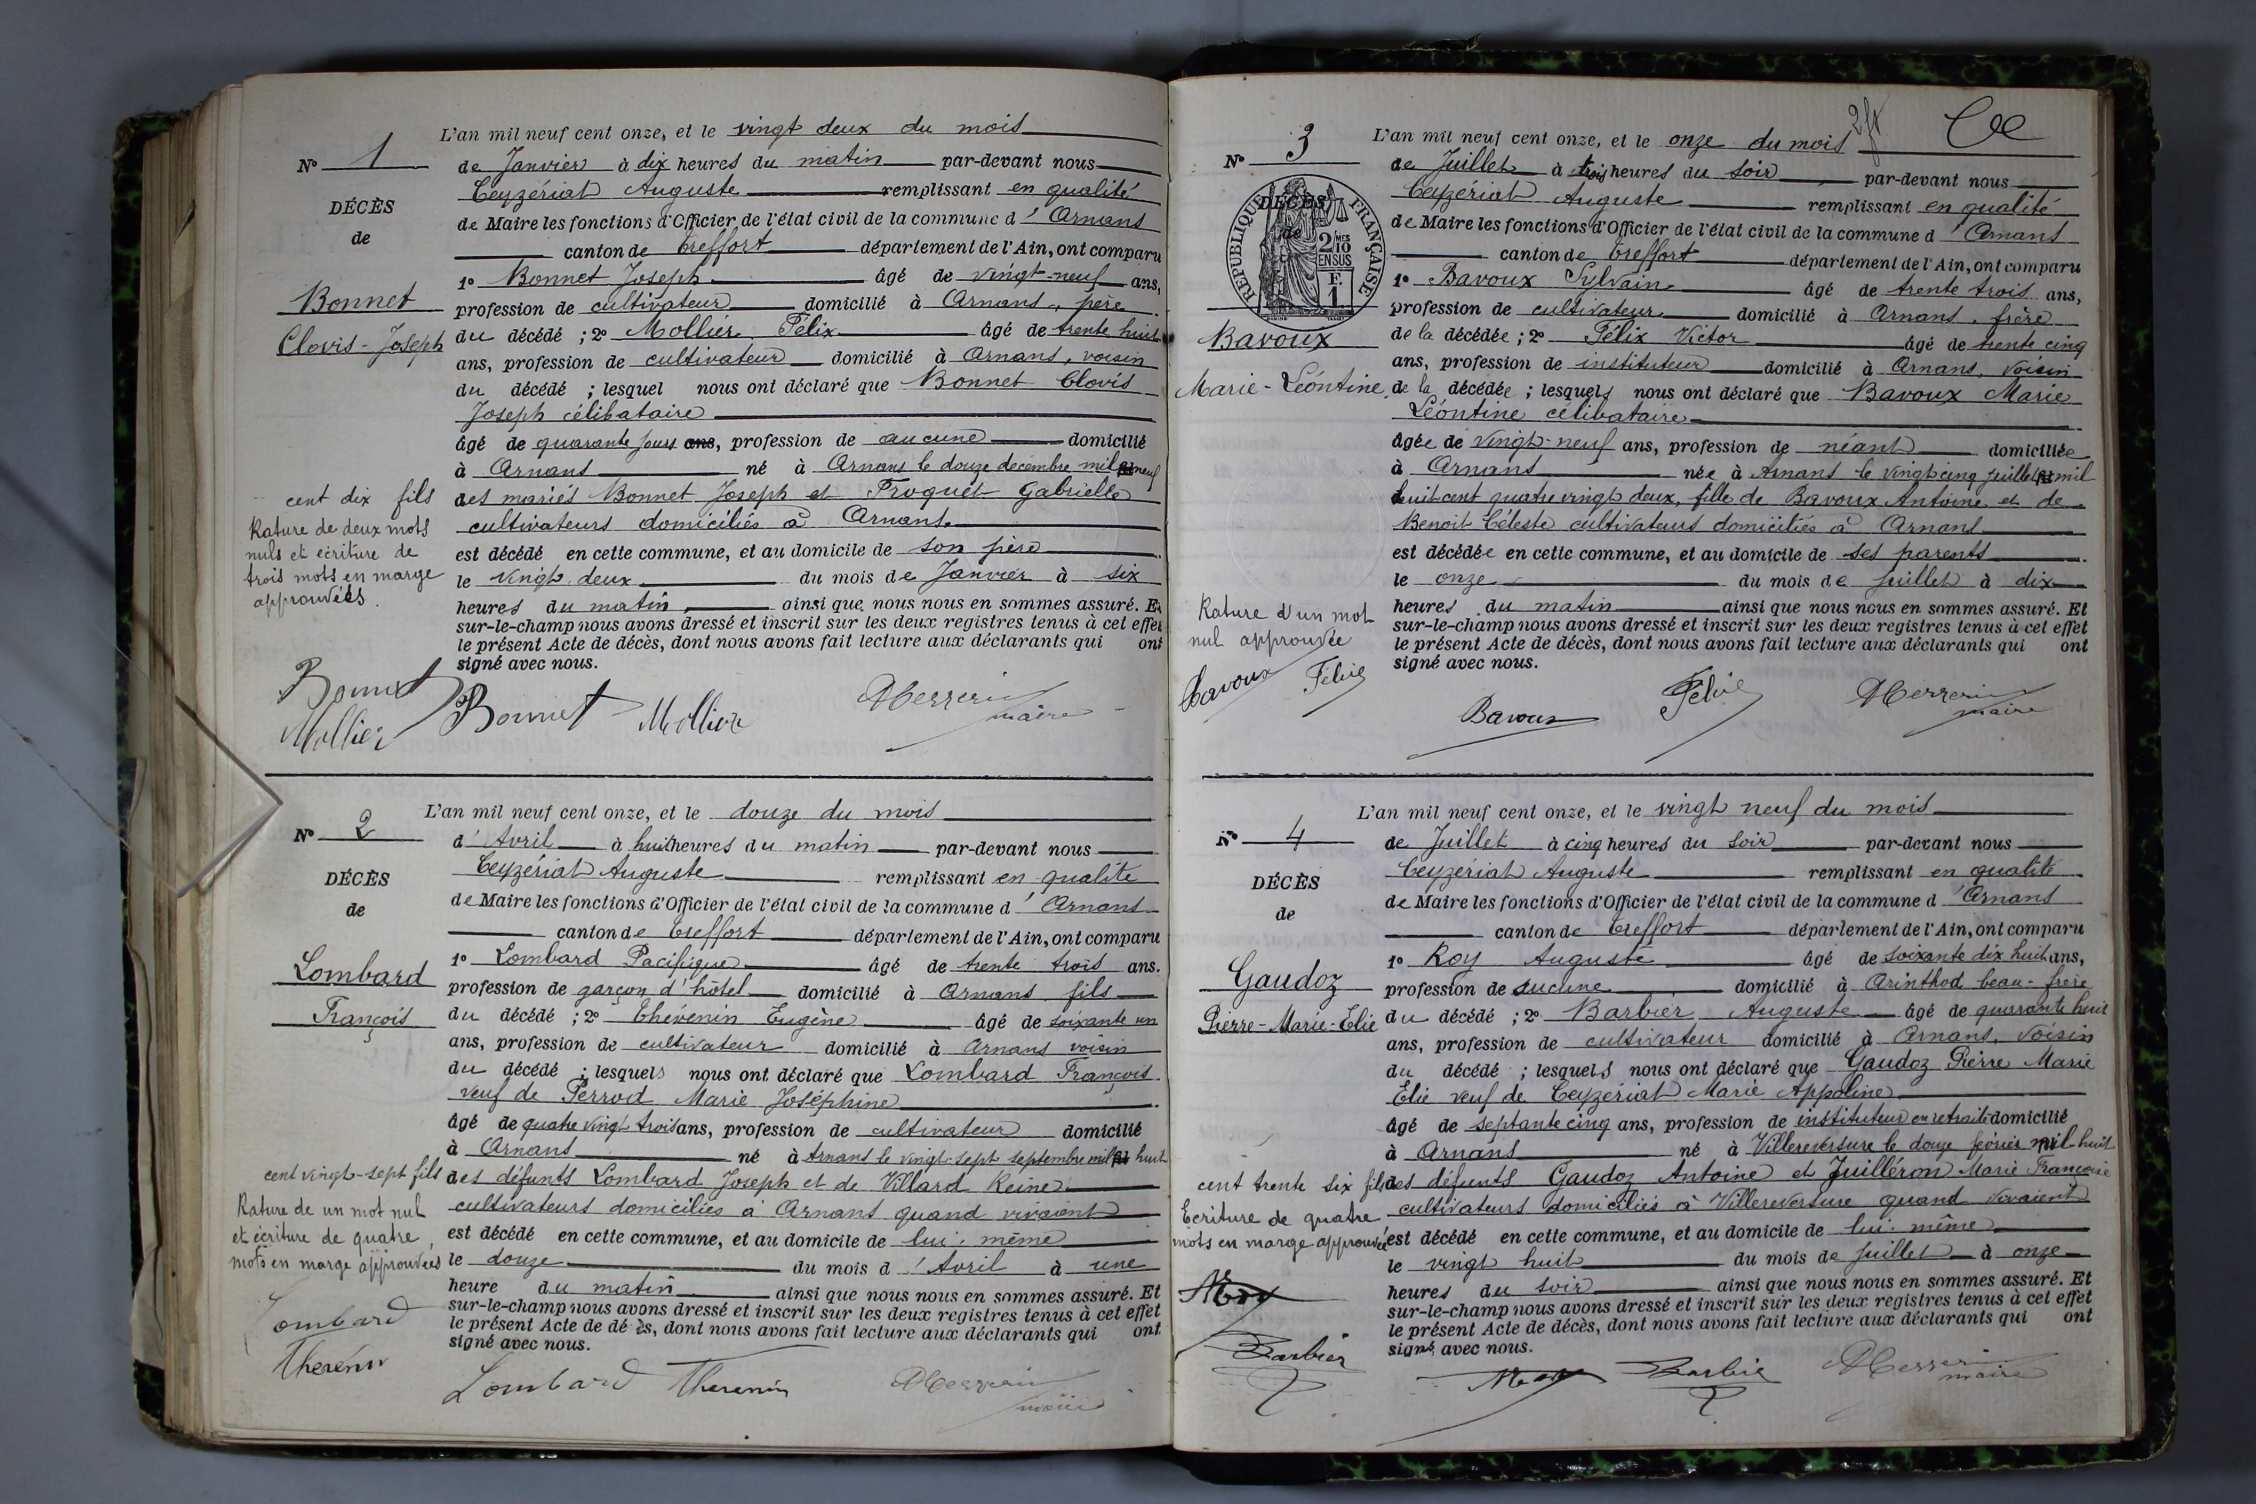 L'an mil neuf cent onze, et le vingt deux du mois
N° 1
de Janvier à dix heures du matin par-devant nous
Ceyzériat Auguste remplissant en qualité
DÉCÈS
de Maire les fonctions d'Officier de l'état civil de la commune d'Arnans
de
canton de Treffort département de l'Ain, ont comparu
1° Bonnet Joseph âgé de vingt-neuf ans,
Bonnet
profession de cultivateur domicilié à Arnans, père
Clovis-Joseph
du décédé ; 2° Mollier Félix âgé de trente huit
ans, profession de cultivateur domicilié à Arnans, voisin
du décédé ; lesquel nous ont déclaré que Bonnet Clovis
Joseph célibataire
âgé de quarante jours ans, profession de aucune domicilié
à Arnans né à Arnans le douze décembre mil neuf
cent dix fils
des mariés Bonnet Joseph et Froquet Gabrielle
cultivateurs domiciliés à Arnans
Rature de deux mots
nuls et écriture de
trois mots en marge
approuvées.
est décédé en cette commune, et au domicile de son père
le vingt deux du mois de Janvier à six
heures du matin ainsi que nous nous en sommes assuré. Et
sur-le-champ nous avons dressé et inscrit sur les deux registres tenus à cet effet
le présent Acte de décès, dont nous avons fait lecture aux déclarants qui ont
signé avec nous.
Bonnet
Mollier
Bonnet Mollier
maire
L'an mil neuf cent onze, et le douze du mois
N° 2
d'Avril à huit heures du matin par-devant nous
Ceyzériat Auguste remplissant en qualité
DÉCÈS
de Maire les fonctions d'Officier de l'état civil de la commune d'Arnans
de
canton de Treffort département de l'Ain, ont comparu
1° Lombard Pacifique âgé de trente trois ans.
Lombard
profession de garçon d'hôtel domicilié à Arnans fils
François
du décédé ; 2° Thévenin Eugène âgé de soixante un
ans, profession de cultivateur domicilié à Arnans voisin
du décédé ; lesquels nous ont déclaré que Lombard François
veuf de Perrod Marie Joséphine
âgé de quatre vingt trois ans, profession de cultivateur domicilié
à Arnans né à Arnans le vingt-sept septembre mil huit
cent vingt-sept fils
des défunts Lombard Joseph et de Villard Reine
cultivateurs domiciliés à Arnans quand vivaient
Rature de un mot nul
et écriture de quatre
mots en marge approuvées
est décédé en cette commune, et au domicile de lui-même
le douze du mois d'Avril à une
heure du matin ainsi que nous nous en sommes assuré. Et
sur-le-champ nous avons dressé et inscrit sur les deux registres tenus à cet effet
le présent Acte de dé ès, dont nous avons fait lecture aux déclarants qui ont
signé avec nous.
Lombard
Thevenin
Lombard Thevenin
maire
2f
L'an mil neuf cent onze, et le onze du mois
N° 3
de Juillet à trois heures du soir par-devant nous
Ceyzériat Auguste remplissant en qualité
DÉCÈS
de
RÉPUBLIQUE FRANÇAISE
2 MES
10
EN SUS
F.
1.
de Maire les fonctions d'Officier de l'état civil de la commune d'Arnans
canton de Treffort département de l'Ain, ont comparu
1° Bavoux Sylvain âgé de trente trois ans,
profession de cultivateur domicilié à Arnans, frère
Bavoux
Marie-Léontine
de la décédée ; 2° Félix Victor âgé de trente cinq
ans, profession de instituteur domicilié à Arnans, voisin
de la décédée ; lesquels nous ont déclaré que Bavoux Marie
Léontine célibataire
âgée de vingt-neuf ans, profession de néant domiciliée
à Arnans née à Arnans le vingt cinq juillet mil
huit cent quatre vingt deux, fille de Bavoux Antoine et de
Benoit Céleste cultivateurs domiciliés à Arnans
est décédée en cette commune, et au domicile de ses parents
le onze du mois de juillet à dix
Rature d'un mot
nul approuvée
Bavoux Félix
heures du matin ainsi que nous nous en sommes assuré. Et
sur-le-champ nous avons dressé et inscrit sur les deux registres tenus à cet effet
le présent Acte de décès, dont nous avons fait lecture aux déclarants qui ont
signé avec nous.
Bavoux Félix
maire
L'an mil neuf cent onze, et le vingt neuf du mois
N° 4
de Juillet à cinq heures du soir par-devant nous
Ceyzériat Auguste remplissant en qualité
DÉCÈS
de Maire les fonctions d'Officier de l'état civil de la commune d'Arnans
de
canton de Treffort département de l'Ain, ont comparu
1° Roy Auguste âgé de soixante dix huit ans,
Gaudoz
profession de aucune domicilié à Arinthod beau-frère
Pierre-Marie-Elie
du décédé ; 2° Barbier Auguste âgé de quarante huit
ans, profession de cultivateur domicilié à Arnans, voisin
du décédé ; lesquels nous ont déclaré que Gaudoz Pierre Marie
Elie veuf de Ceyzériat Marie Appoline
âgé de septante cinq ans, profession de instituteur en retraite domicilié
à Arnans né à Villereversure le douze février mil-huit
cent trente six fils
des défunts Gaudoz Antoine et Juilléron Marie Françoise
cultivateurs domiciliés à Villereversure quand vivaient
Ecriture de quatre
mots en marge approuvée
est décédé en cette commune, et au domicile de lui-même
le vingt huit du mois de juillet à onze
heures du soir ainsi que nous nous en sommes assuré. Et
sur-le-champ nous avons dressé et inscrit sur les deux registres tenus à cet effet
le présent Acte de décès, dont nous avons fait lecture aux déclarants qui ont
signé avec nous.
Barbier
Barbier
maire